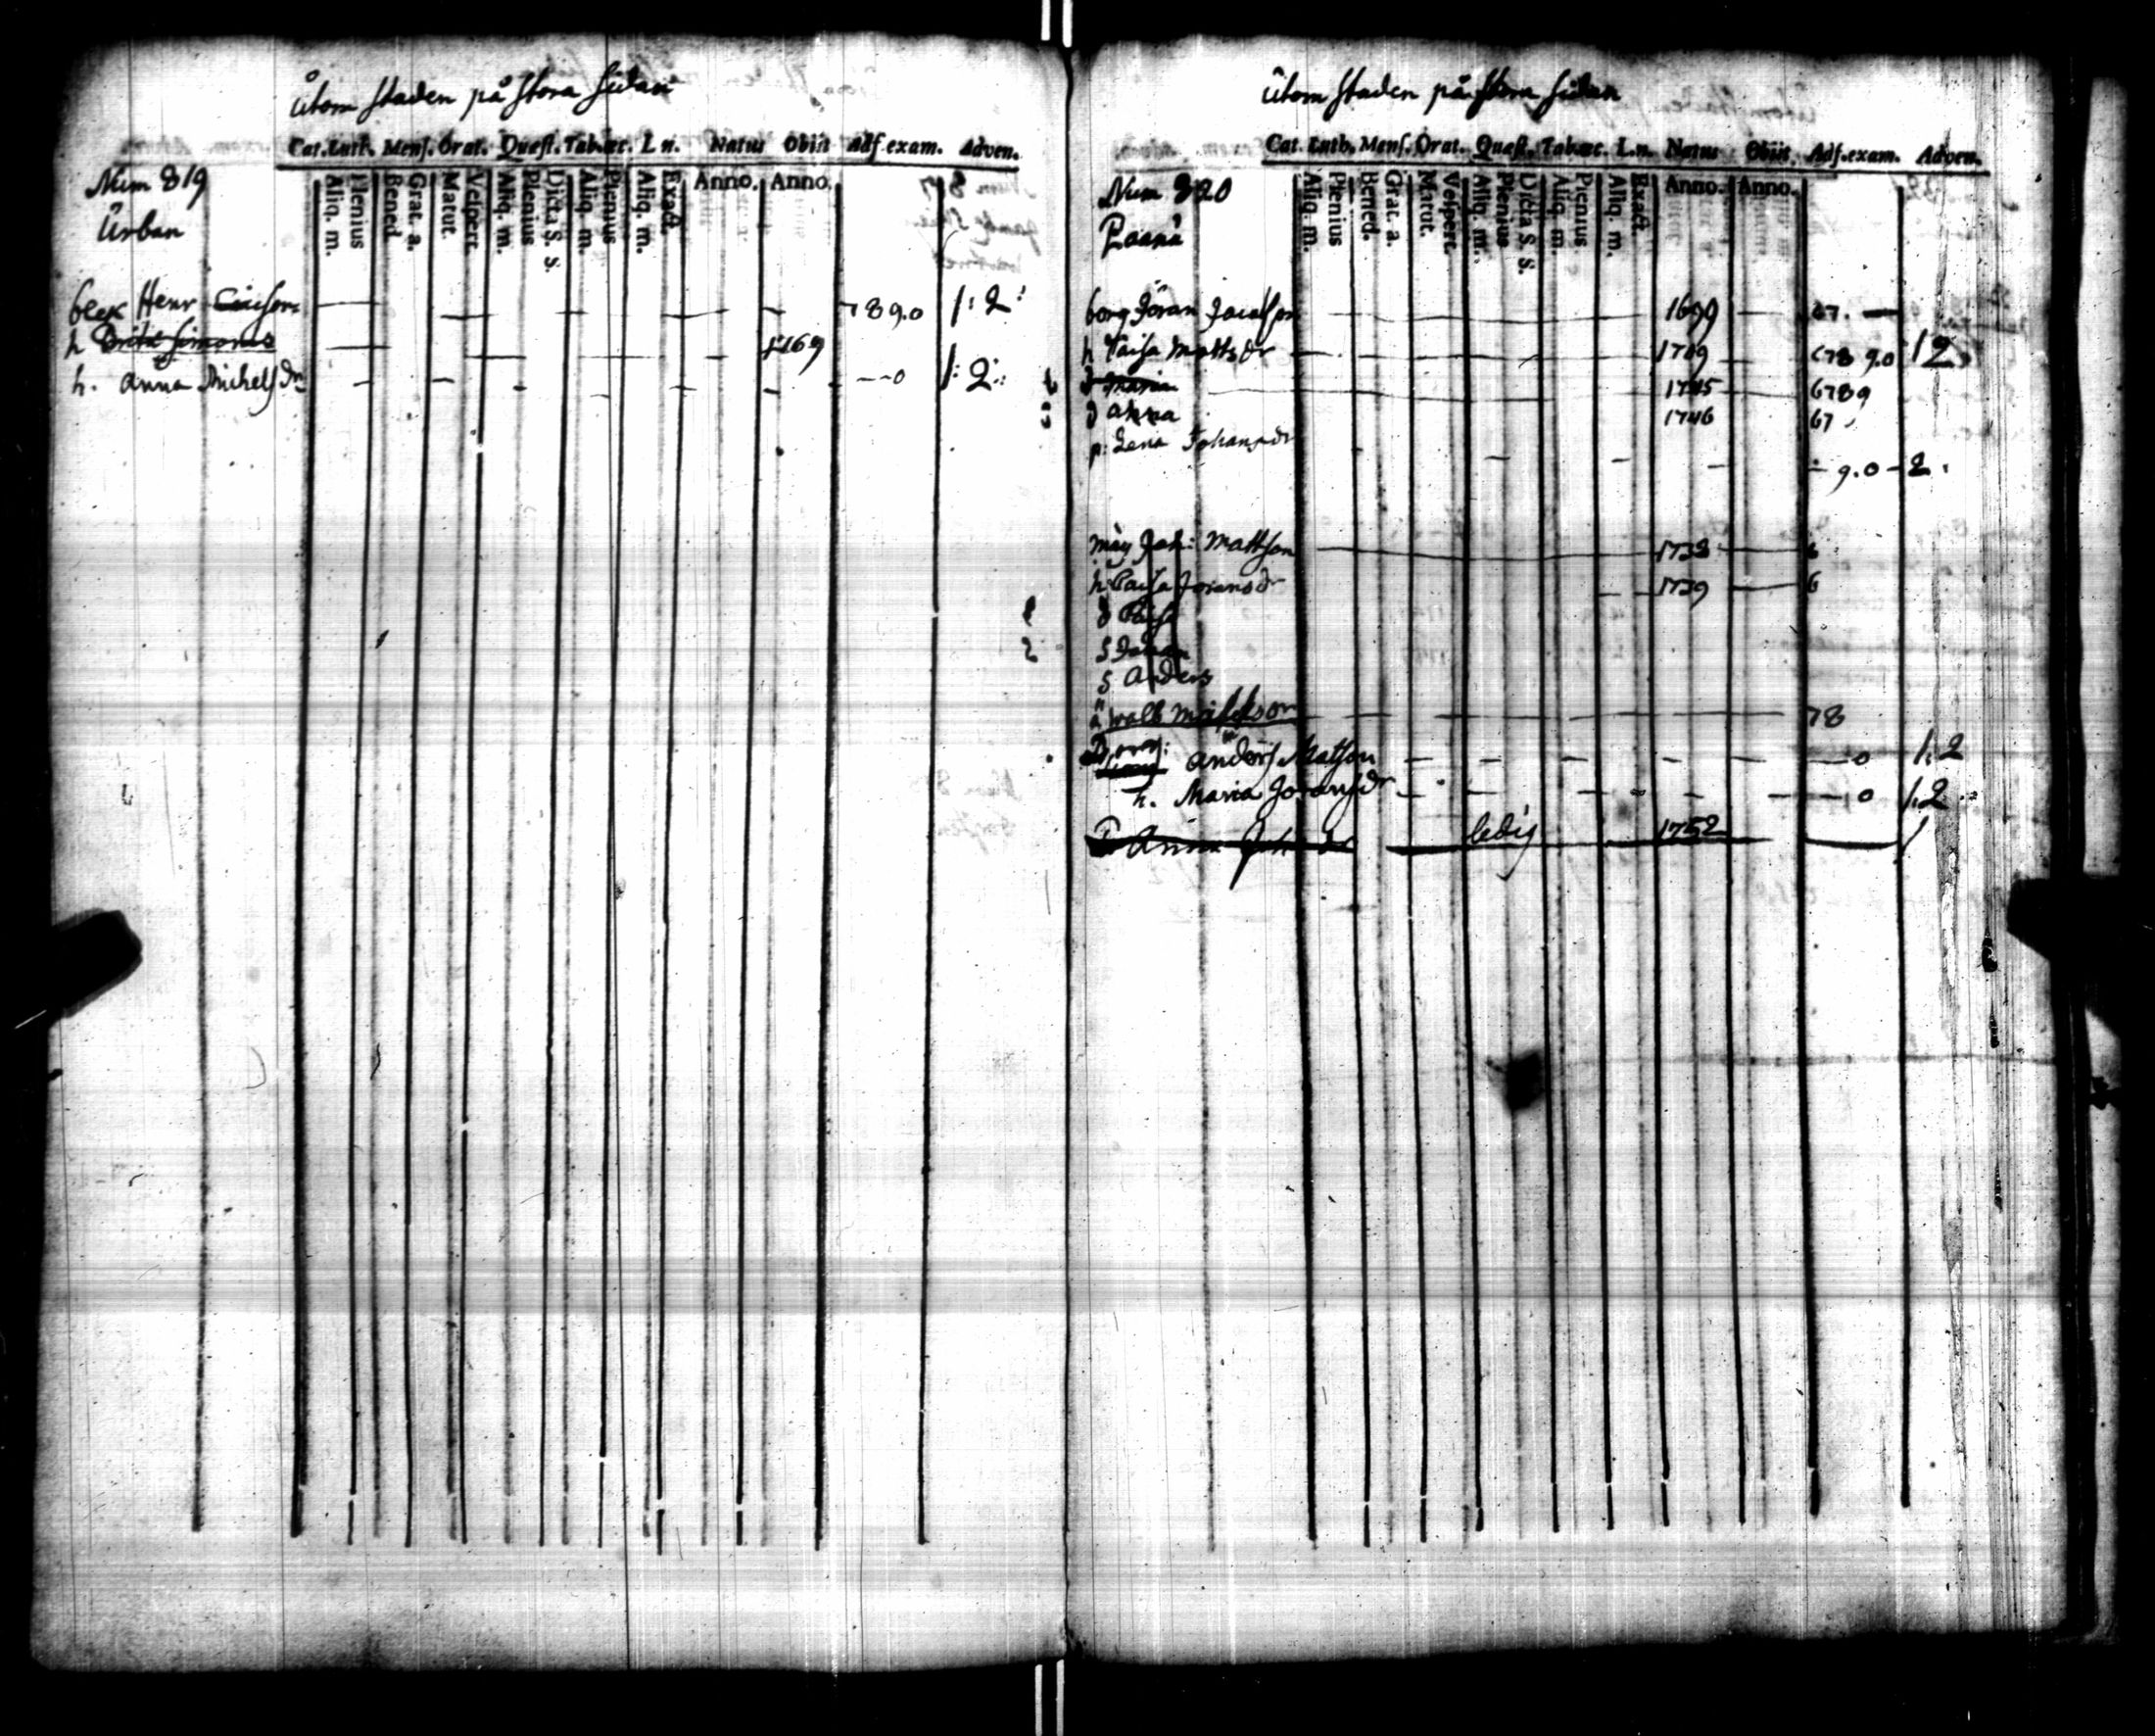 Utom staden på stora sidan
Cat. Luth. Mens. Orat. Quæst. Tab. œc. L. n. Natus Obiit Adf. exam. Adven.
Aliq. m. Plenius Bened. Grat. a. Matut. Vespert. Aliq. m. Plenius Dicta S. S. Aliq. m. Plenius Aliq. m. Exact. Anno. Anno.
Num 819
Urban
Henr 7 8 9.0 1: 2:
h Brita Simonsd †1769
h. Anna Michelsdr — — 0 1: 2:
Utom staden på stora sidan
Cat. Luth. Mens. Orat. Quæst. Tab. œc. L. n. Natus Obiit Adf. exam. Adven.
Aliq. m. Plenius Bened. Grat. a. Matut. Vespert. Aliq. m. Plenius Dicta S. S. Aliq. m. Plenius Aliq. m. Exact. Anno. Anno.
Num 820
borg Jöran Jacobson 1699 67. —
h Caisa Mattsdr 1709 678 9.0 1 2
d Maria 1745 6789
d Anna 1746 67
p: Lena Johansdr — 9.0 - 2.
måg Joh: Mattson 1738 6
h: Caisa Joransdr 1739 6
d Caisa
2 S Johan
S Anders
78
Anders Matson — 0 1: 2
h. Maria Joransdr — 0 1: 2
Anna Joh dr ledig 1752 1